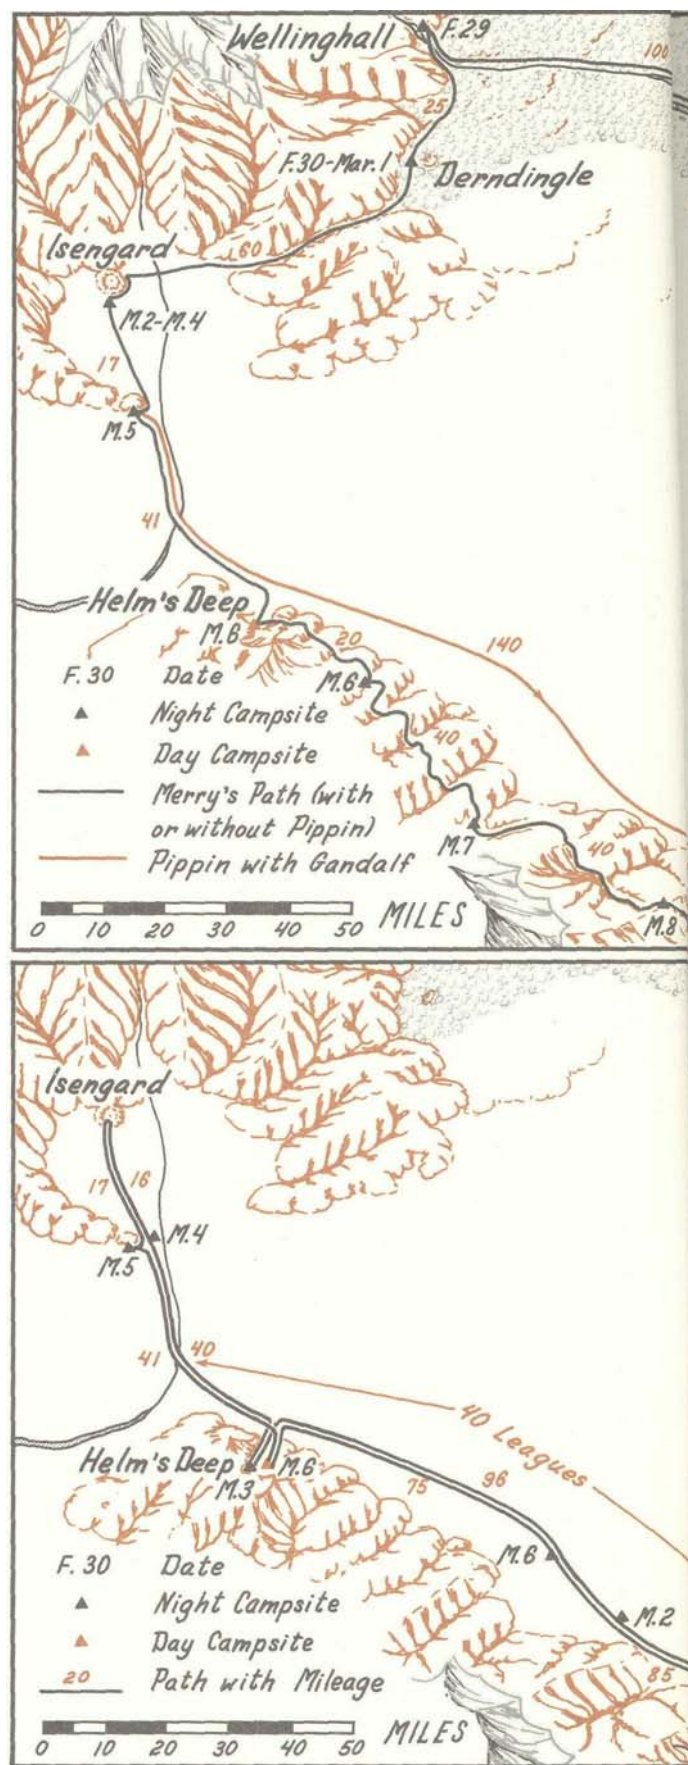 Wellinghall
F.29
100
25
F.30-Mar.1
Derndingle
Isengard
60
M.2-M.4
17
M.5
41
Helm's Deep
M.6
20
140
F.30 Date
M.6
Night Campsite
Day Campsite
40
Merry's Path (with
or without Pippin)
M.7
40
Pippin with Gandalf
MILES
M.8
0 10 20 30 40 50
Isengard
17 16
M.4
M.5
41 40
40 Leagues
Helm's Deep
M.6
M.3
75
96
M.6
F.30 Date
Night Campsite
M.2
Day Campsite
20 Path with Mileage
85
MILES
0 10 20 30 40 50